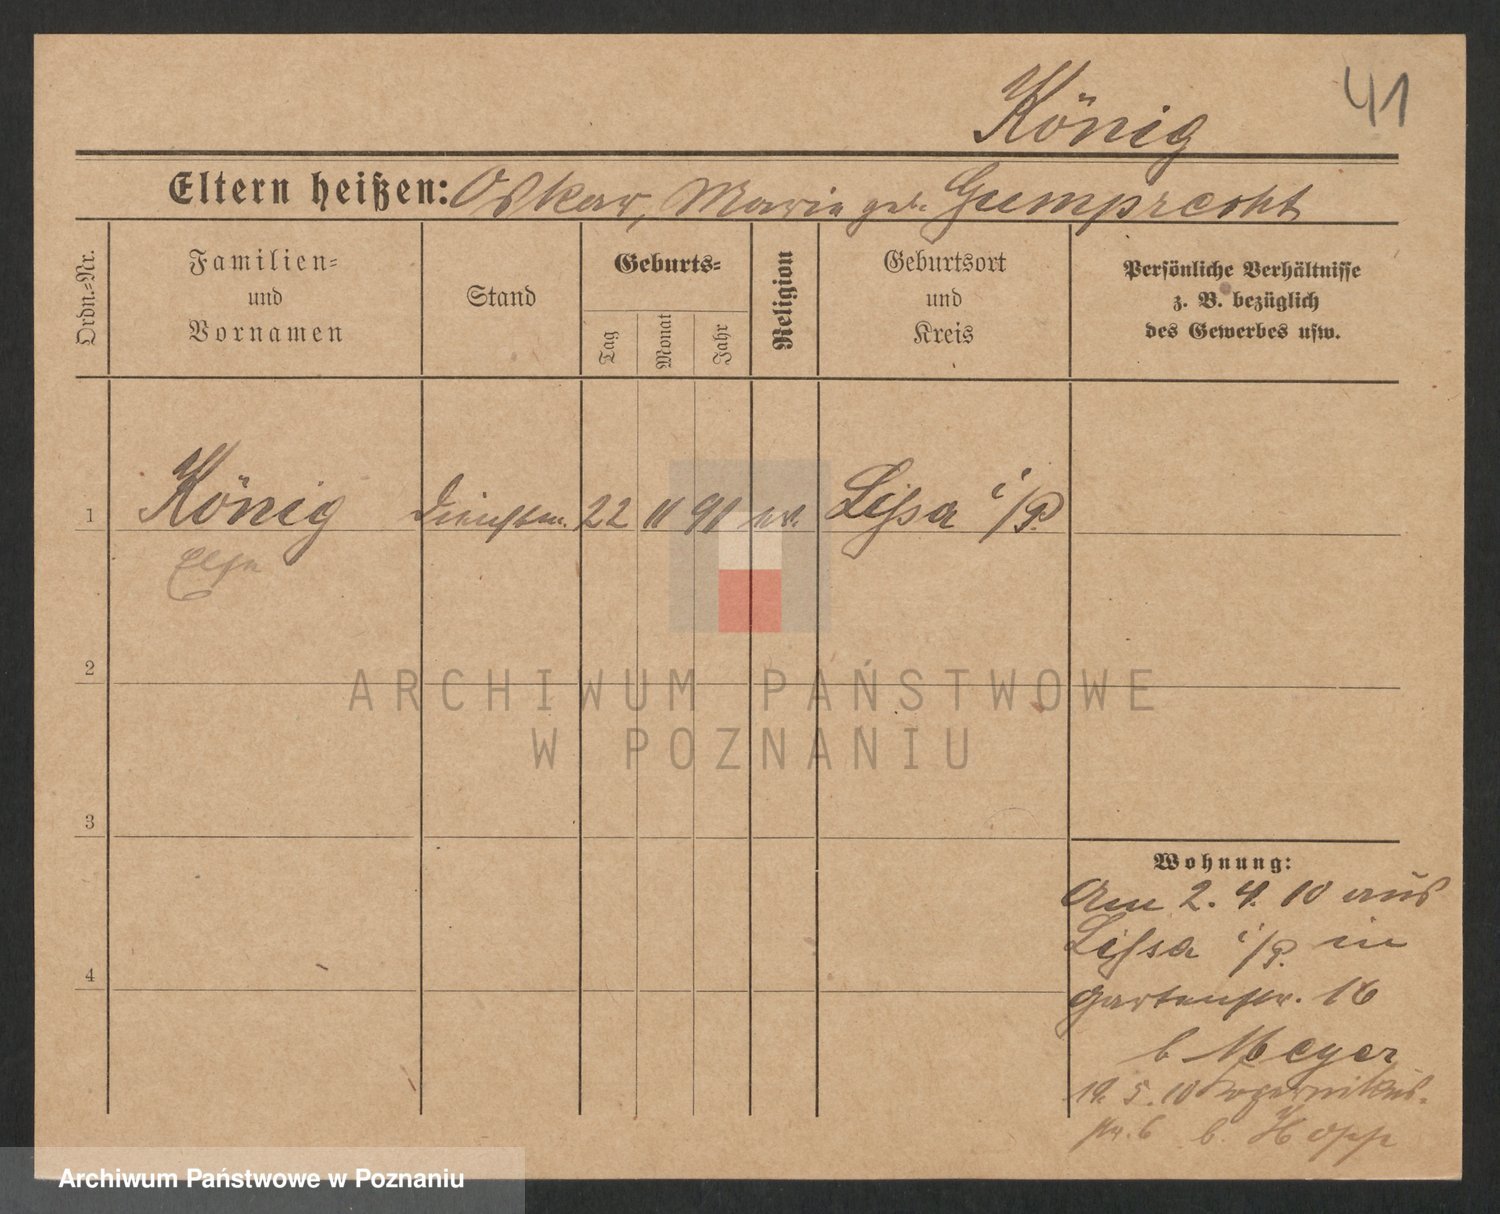 41
König
Eltern heißen: Oskar, Marie geb. Gumprecht
Ordn.-Nr.
Familien-
und
Vornamen
Stand
Geburts-
Tag
Monat
Jahr
Religion
Geburtsort
und
Kreis
Persönliche Verhältnisse
z. B. bezüglich
des Gewerbes usw.
1
König
Dienstm. 22 11 91 ev. Lissa i/P.
Else
2
ARCHIWUM PAŃSTWOWE
W POZNANIU
3
Wohnung:
Am 2. 4. 10 aus
Lissa i/P. in
Gartenstr. 16
b Meyer
4
19. 5. 10 Kopernikus-
str. 6 b. Hopp
Archiwum Państwowe w Poznaniu